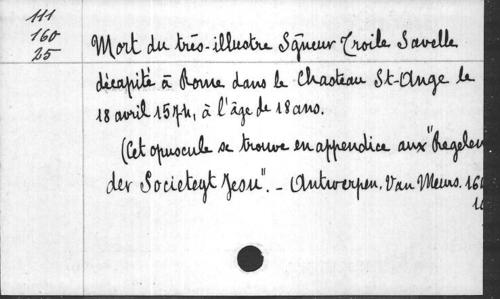 111
160
25
Mort du très-illustre Sgneur Troile Savelle
décapité à Rome dans le Chasteau St-Ange le
18 avril 1574, à l'âge de 18 ans.
(Cet opuscule se trouve en appendice aux "Regelen
der Societeyt Jesu". - Antwerpen, Van Meurs. 16